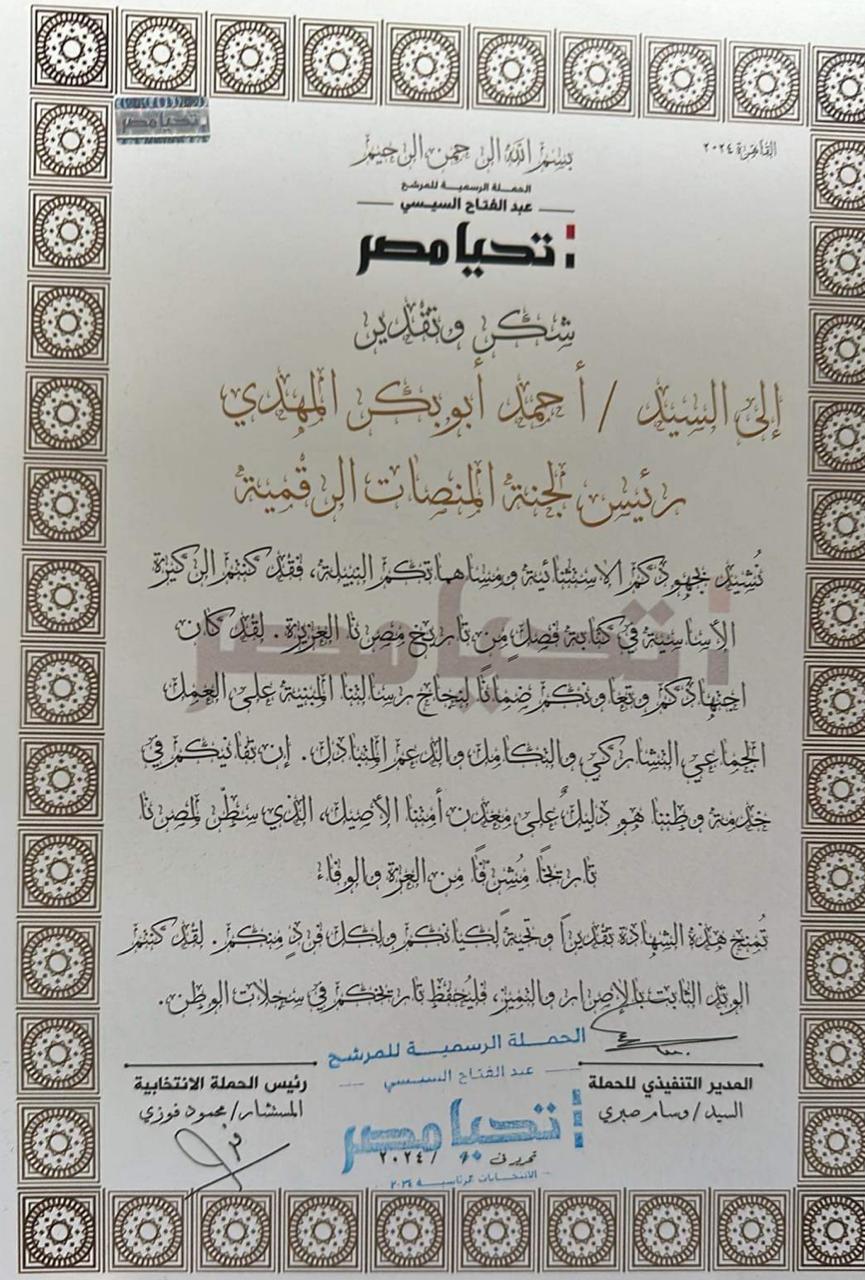 تحيا مصر
القاهرة ٢٠٢٤
بسم الله الرحمن الرحيم
الحملة الرسمية للمرشح
عبد الفتاح السيسي
تحيا مصر
شكر وتقدير
إلى السيد / أحمد أبوبكر المهدي
رئيس لجنة المنصات الرقمية
نُشيد بجهودكم الاستثنائية ومساهماتكم النبيلة، فقد كنتم الركيزة
الأساسية في كتابة فصلٍ من تاريخ مصرنا العزيزة. لقد كان
اجتهادكم وتعاونكم ضمانًا لنجاح رسالتنا المبنية على العمل
الجماعي التشاركي والتكامل والدعم المتبادل. إن تفانيكم في
خدمة وطننا هو دليلٌ على معدن أمتنا الأصيل، الذي سطّر لمصرنا
تاريخًا مُشرفًا من العزة والوفاء
تُمنح هذه الشهادة تقديراً وتحيةً لكيانكم ولكل فردٍ منكم. لقد كنتم
الوتد الثابت بالإصرار والتميز، فليُحفظ تاريخكم في سجلات الوطن.
المدير التنفيذي للحملة
السيد / وسام صبري
رئيس الحملة الانتخابية
المستشار / محمود فوزي
الحملة الرسمية للمرشح
عبد الفتاح السيسي
تحيا مصر
تحرير في / ٢٠٢٤